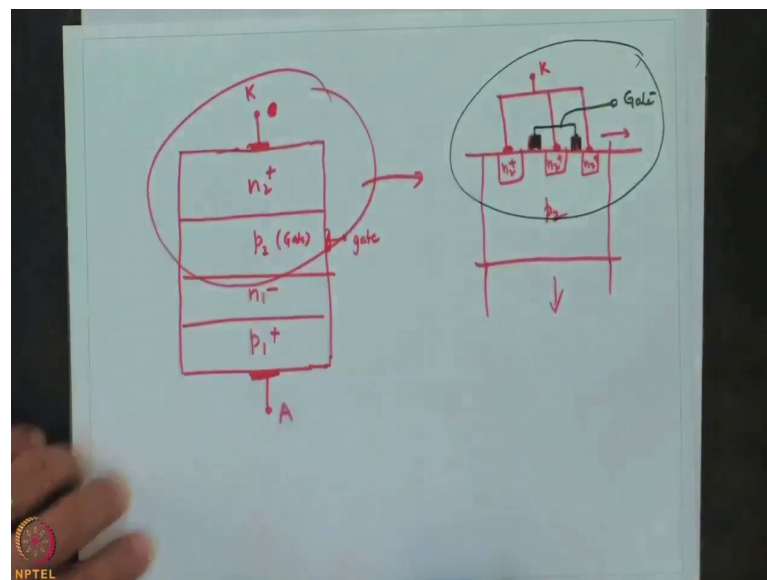 K
n₂⁺
p₂ (Gate)
gate
n₁⁻
p₁⁺
A
K
Gate
n₂⁺
n₂⁺
n₂⁺
p₂
NPTEL